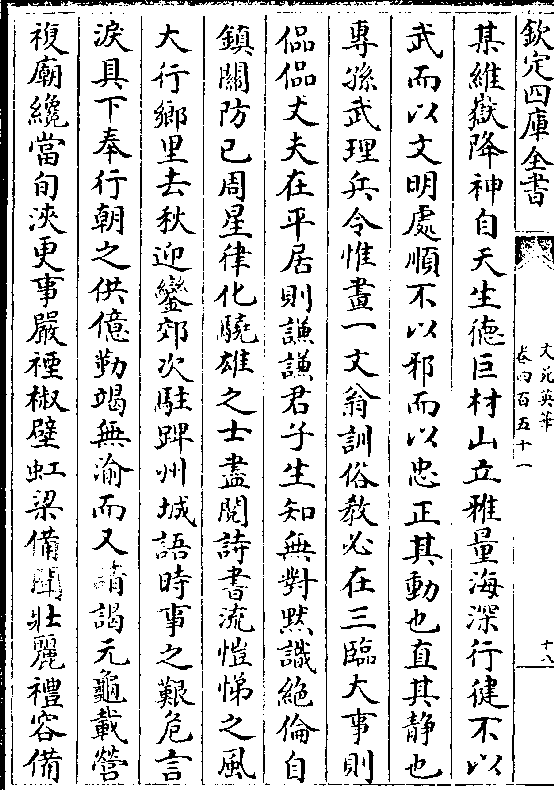 欽定四庫全書
文苑英華
卷四百五十一
十八
某維嶽降神自天生德巨材山立雅量海深行健不以
武而以文明處順不以邪而以忠正其動也直其静也
專孫武理兵令惟畫一文翁訓俗教必在三臨大事則
侃侃丈夫在平居則謙謙君子生知無對黙識絶倫自
鎮關防已周星律化驍雄之士盡閱詩書流愷悌之風
大行鄉里去秋迎鑾郊次駐蹕州城語時事之艱危言
淚具下奉行朝之供億勤竭無渝而又請謁元龜載營
複廟纔當旬浹更事嚴禋椒壁虹梁備聞壯麗禮容備